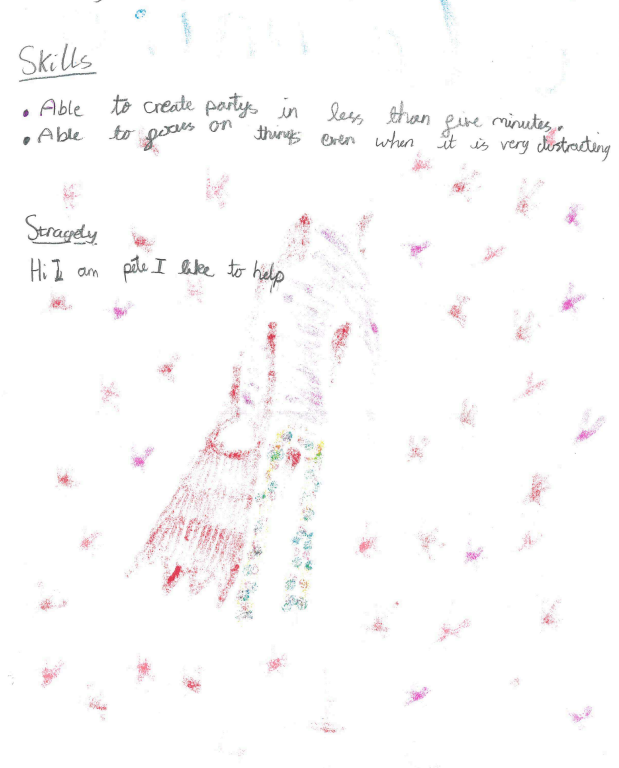 Skills
• Able to create partys in less than five minutes.
• Able to focus on things even when it is very distracting
Stragedy
Hi I am pete I like to help